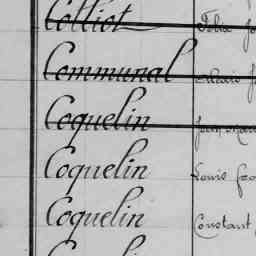 Colliot Félix
Communal
Coquelin Jean
Coquelin Louis
Coquelin Constant